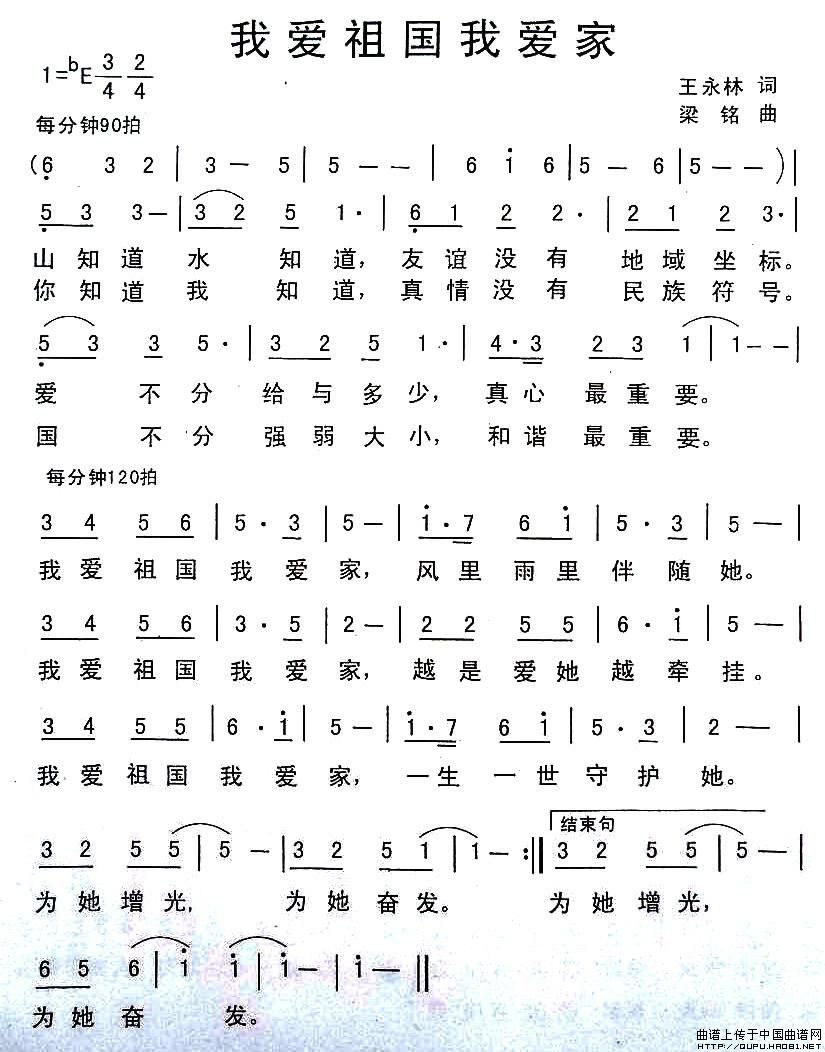 我爱祖国我爱家
1=bE 3/4 2/4
王永林 词
梁铭 曲
每分钟90拍
(6 3 2 | 3 — 5 | 5 — — | 6 i 6 | 5 — 6 | 5 — — ) |
5 3 3 — | 3 2 5 1· | 6 1 2 2· | 2 1 2 3· |
山知道水 知道，友谊没有 地域坐标。
你知道我 知道，真情没有 民族符号。
5 3 3 5· | 3 2 5 1· | 4·3 2 3 1 | 1 — — |
爱 不分 给与多少，真心 最重要。
国 不分 强弱大小，和谐 最重要。
每分钟120拍
3 4 5 6 | 5· 3 | 5 — | i·7 6 i | 5· 3 | 5 — |
我爱 祖国 我爱家，风里雨里伴随她。
3 4 5 6 | 3· 5 | 2 — | 2 2 5 5 | 6· i | 5 — |
我爱 祖国 我爱家，越是爱她越牵挂。
3 4 5 5 | 6· i | 5 — | i·7 6 i | 5· 3 | 2 — |
我爱祖国我爱家，一生一世守护她。
结束句
3 2 5 5 | 5 — | 3 2 5 1 | 1 — :‖ 3 2 5 5 | 5 — |
为她增光，为她奋发。为她增光，
6 5 6 i | i i | i — ‖
为她奋 发。
曲谱上传于中国曲谱网
HTTP://QUPU.HAO81.NET